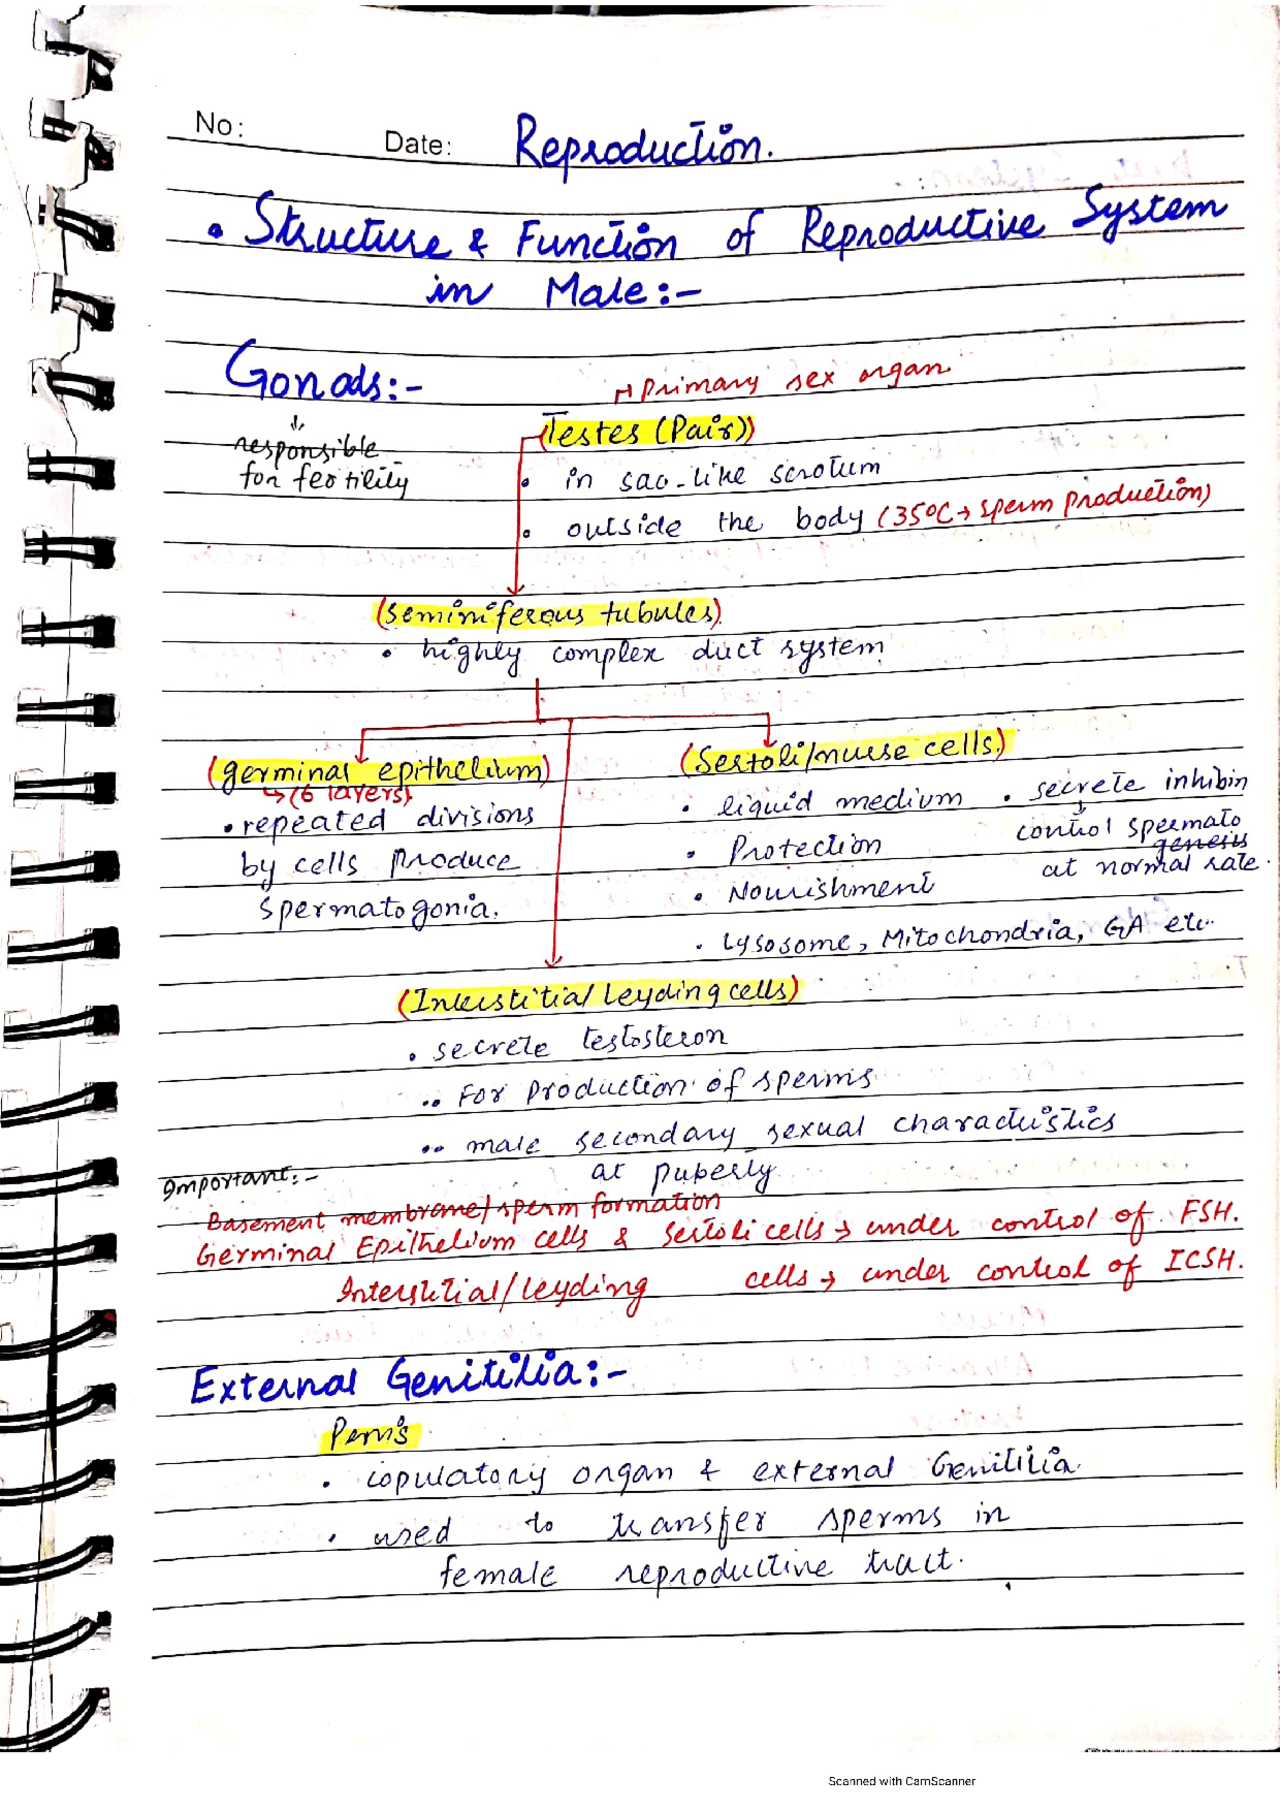 No:
Date: Reproduction.
• Structure & Function of Reproductive System
in Male:-
Gonads:-
↓
responsible
for fertility
↦ primary sex organ
(Testes (Pair))
• in sac-like scrotum
• outside the body (35°C → sperm production)
(Seminiferous tubules)
• highly complex duct system
(germinal epithelium)
↳ (6 layers)
• repeated divisions
by cells produce
spermatogonia.
(Sertoli/nurse cells)
• liquid medium
• Protection
• Nourishment
• secrete inhibin
↓
control spermato
genesis
at normal rate.
• Lysosome, Mitochondria, GA etc.
(Interstitial/leyding cells)
• secrete testosteron
•• For production of sperms
•• male secondary sexual characteristics
at puberty
Important:-
Basement membrane/sperm formation
Germinal Epithelium cells & Sertoli cells → under control of FSH.
Interstitial/leyding cells → under control of ICSH.
External Genitilia:-
Penis
• copulatory organ & external Genitilia
• used to transfer sperms in
female reproductive tract.
Scanned with CamScanner